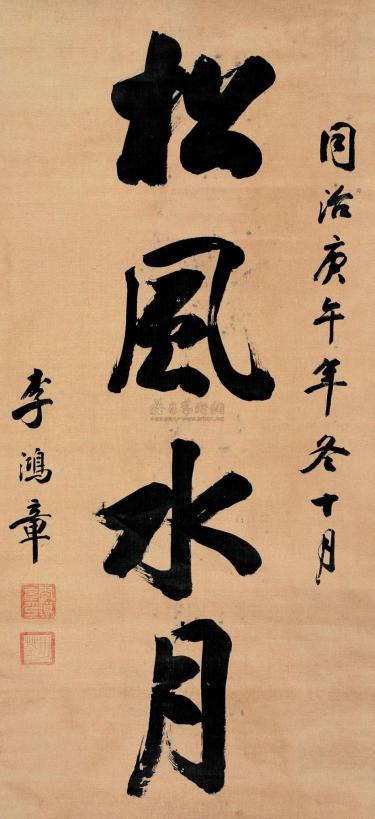 同治庚午年冬十月
松風水月
李鴻章